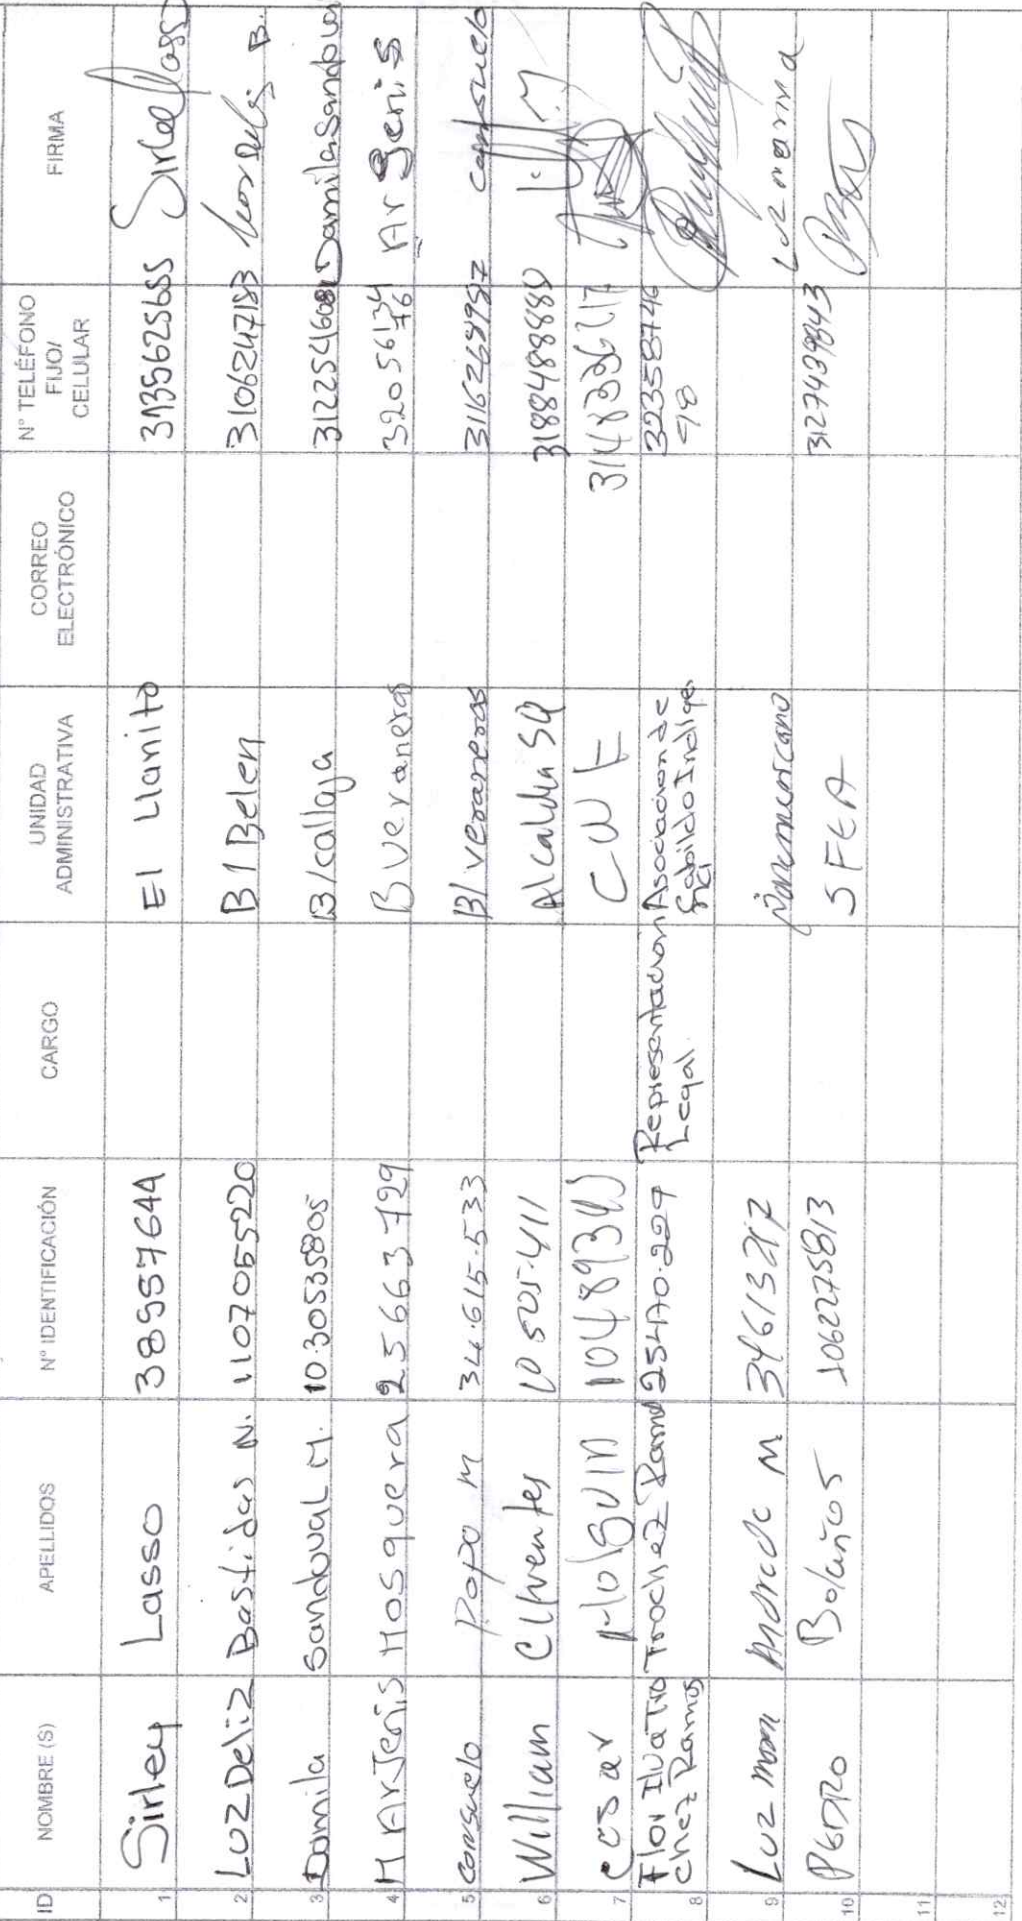 ID NOMBRE (S) APELLIDOS N° IDENTIFICACIÓN CARGO UNIDAD ADMINISTRATIVA CORREO ELECTRÓNICO N° TELÉFONO FIJO/ CELULAR FIRMA
1 Sirley Lasso 38557644 El Llanito 3135625655
2 Luz Deliz Bastidas N. 1107055220 B/Belen 3106247183
3 Damila Sandoval M. 1030535805 B/callaja 3122546081 Damila Sandoval
4 M Arjenis Mosquera 25663729 B veraneras 3205613476 Argenis
5 Consuelo Popo M 34.615.533 B/ veraneras 3116268987 consuelo
6 William Cifuentes 10 505.411 Alcaldia SQ 3188489888
7 Cesar Holguin 10489345 3148226217
8 Flor Ilva Trochez Ramos Trochez Ramos 25470.229 Representacion Legal. Asociacion de Cabildo Indige 3235874698
9 Luz Andrade M. 34613217 Panamericano Luz marina
10 Pedro Bolaños 1062275813 3127439843
11
12